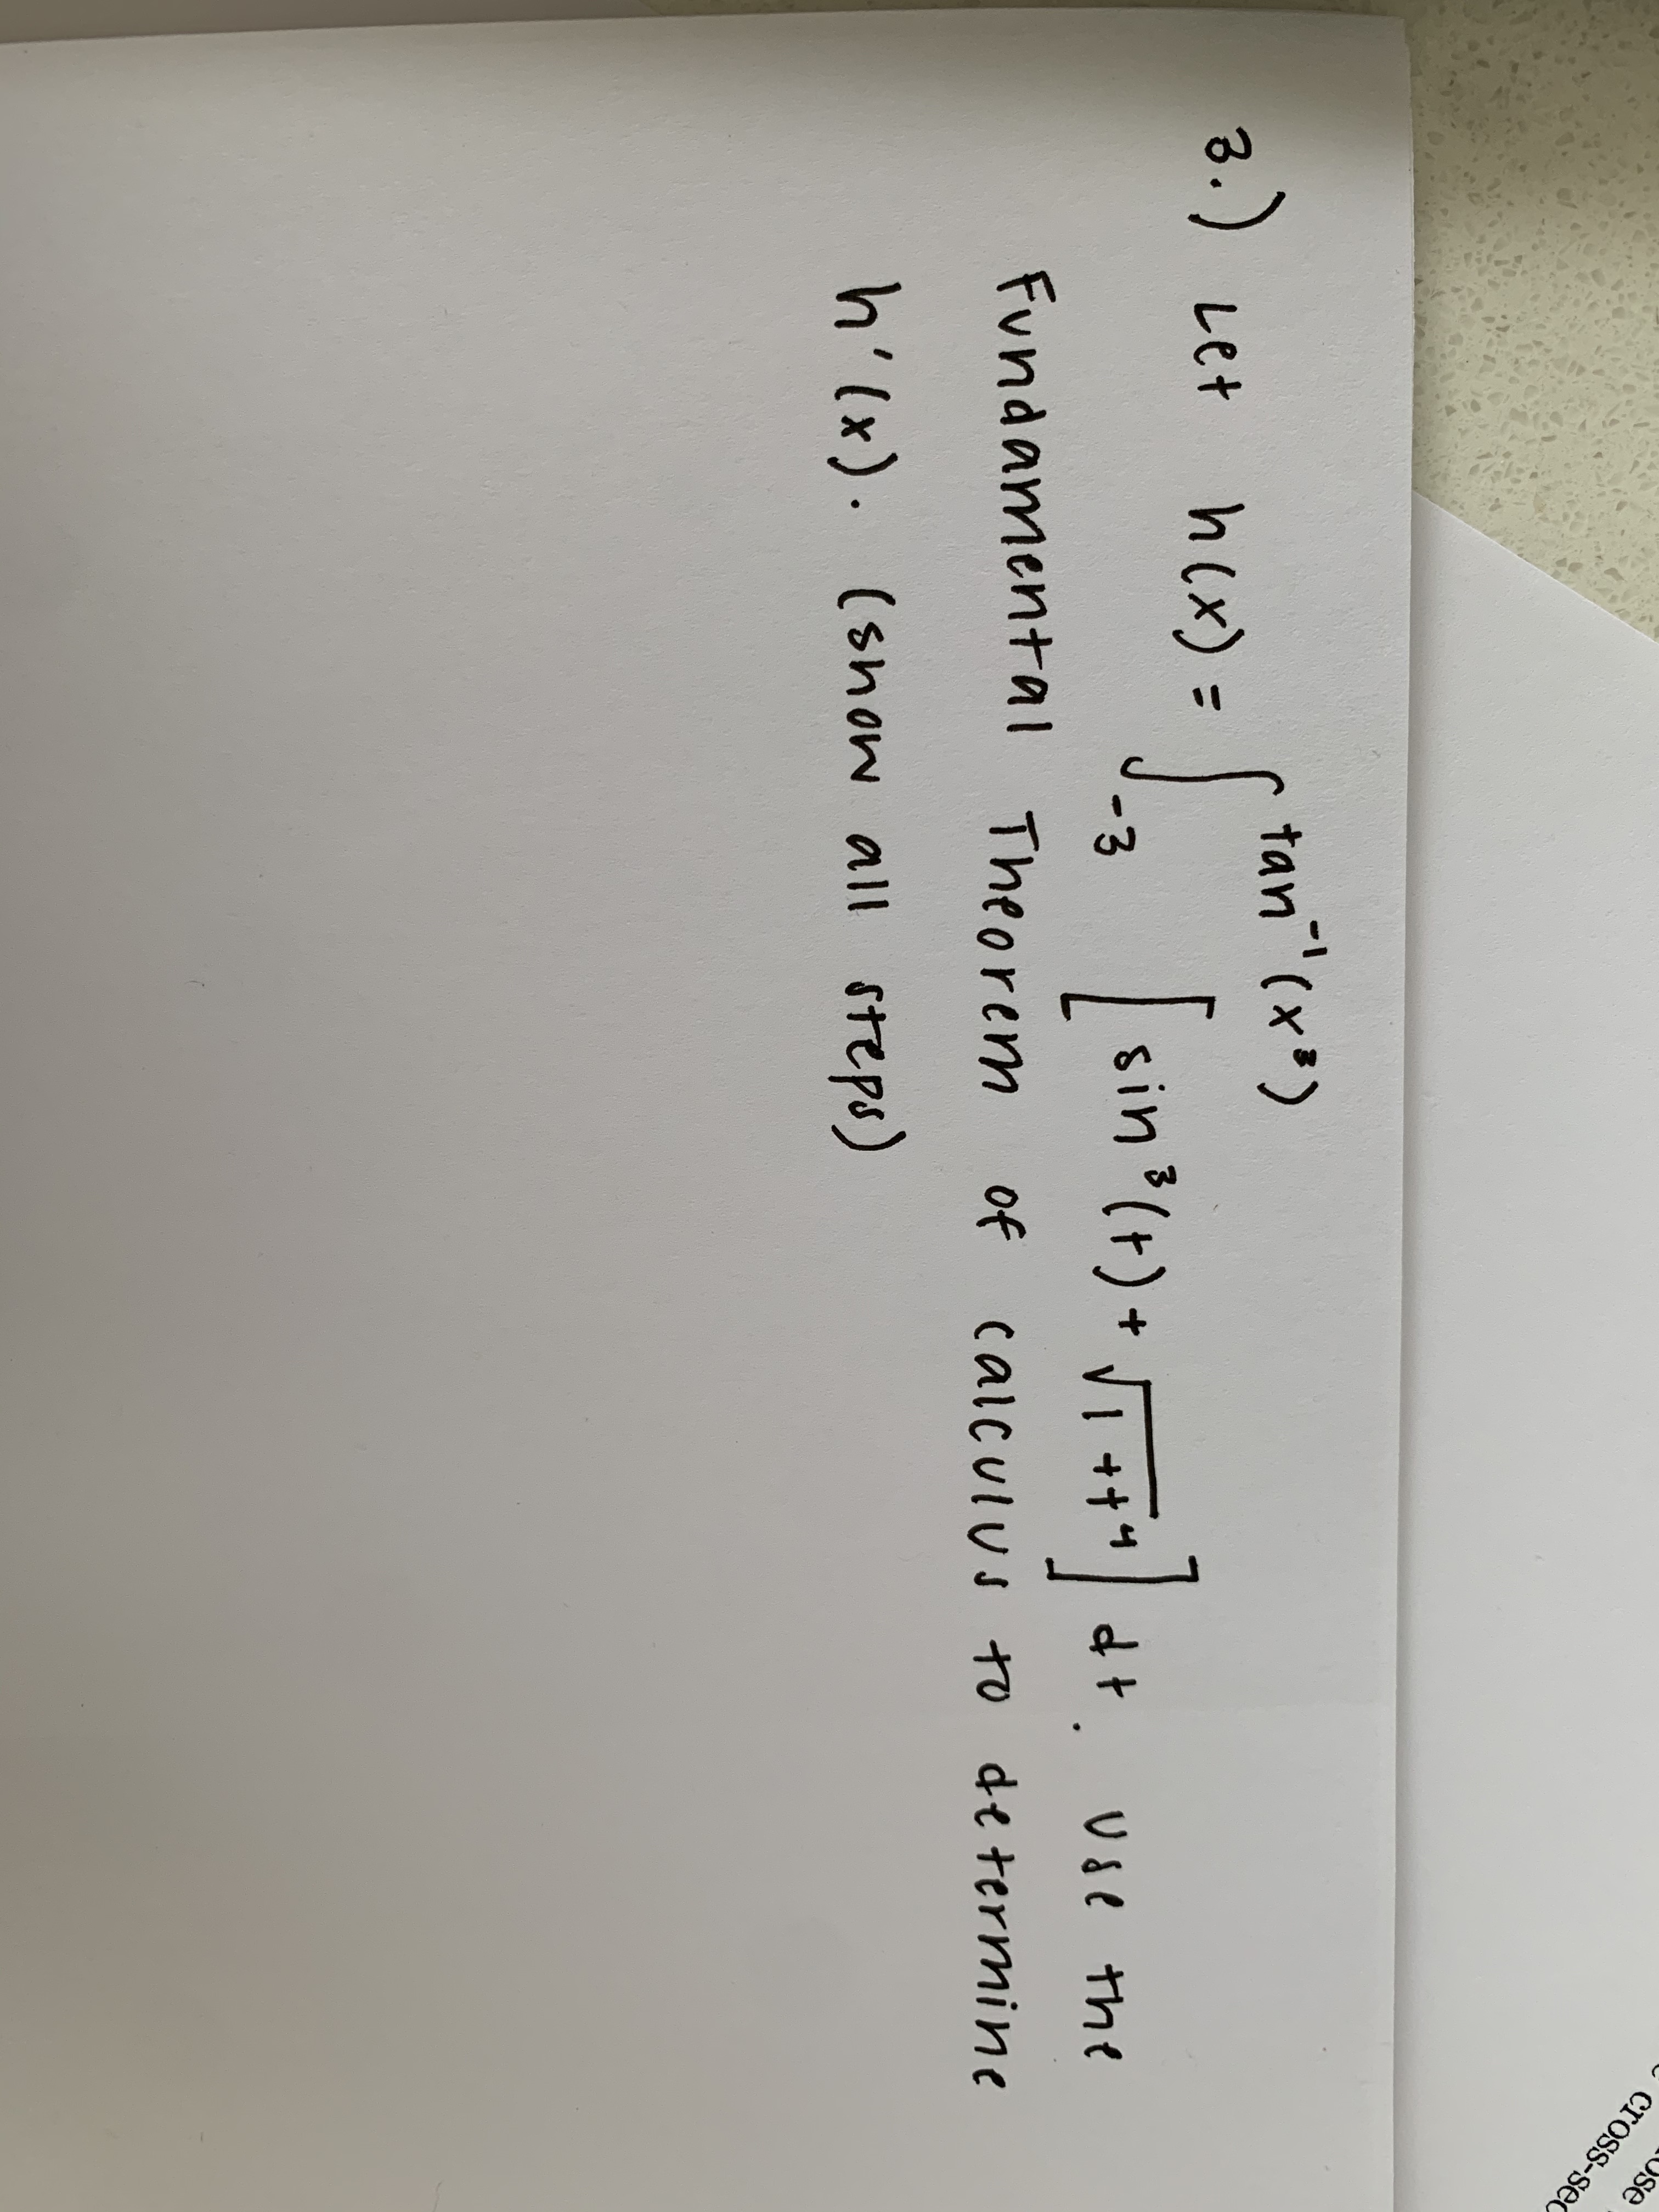 3.) Let h(x) = ∫_{-3}^{tan⁻¹(x³)} [sin³(t) + √(1+t⁴)] dt. Use the
Fundamental Theorem of calculus to determine
h'(x). (show all steps)
cross-sec